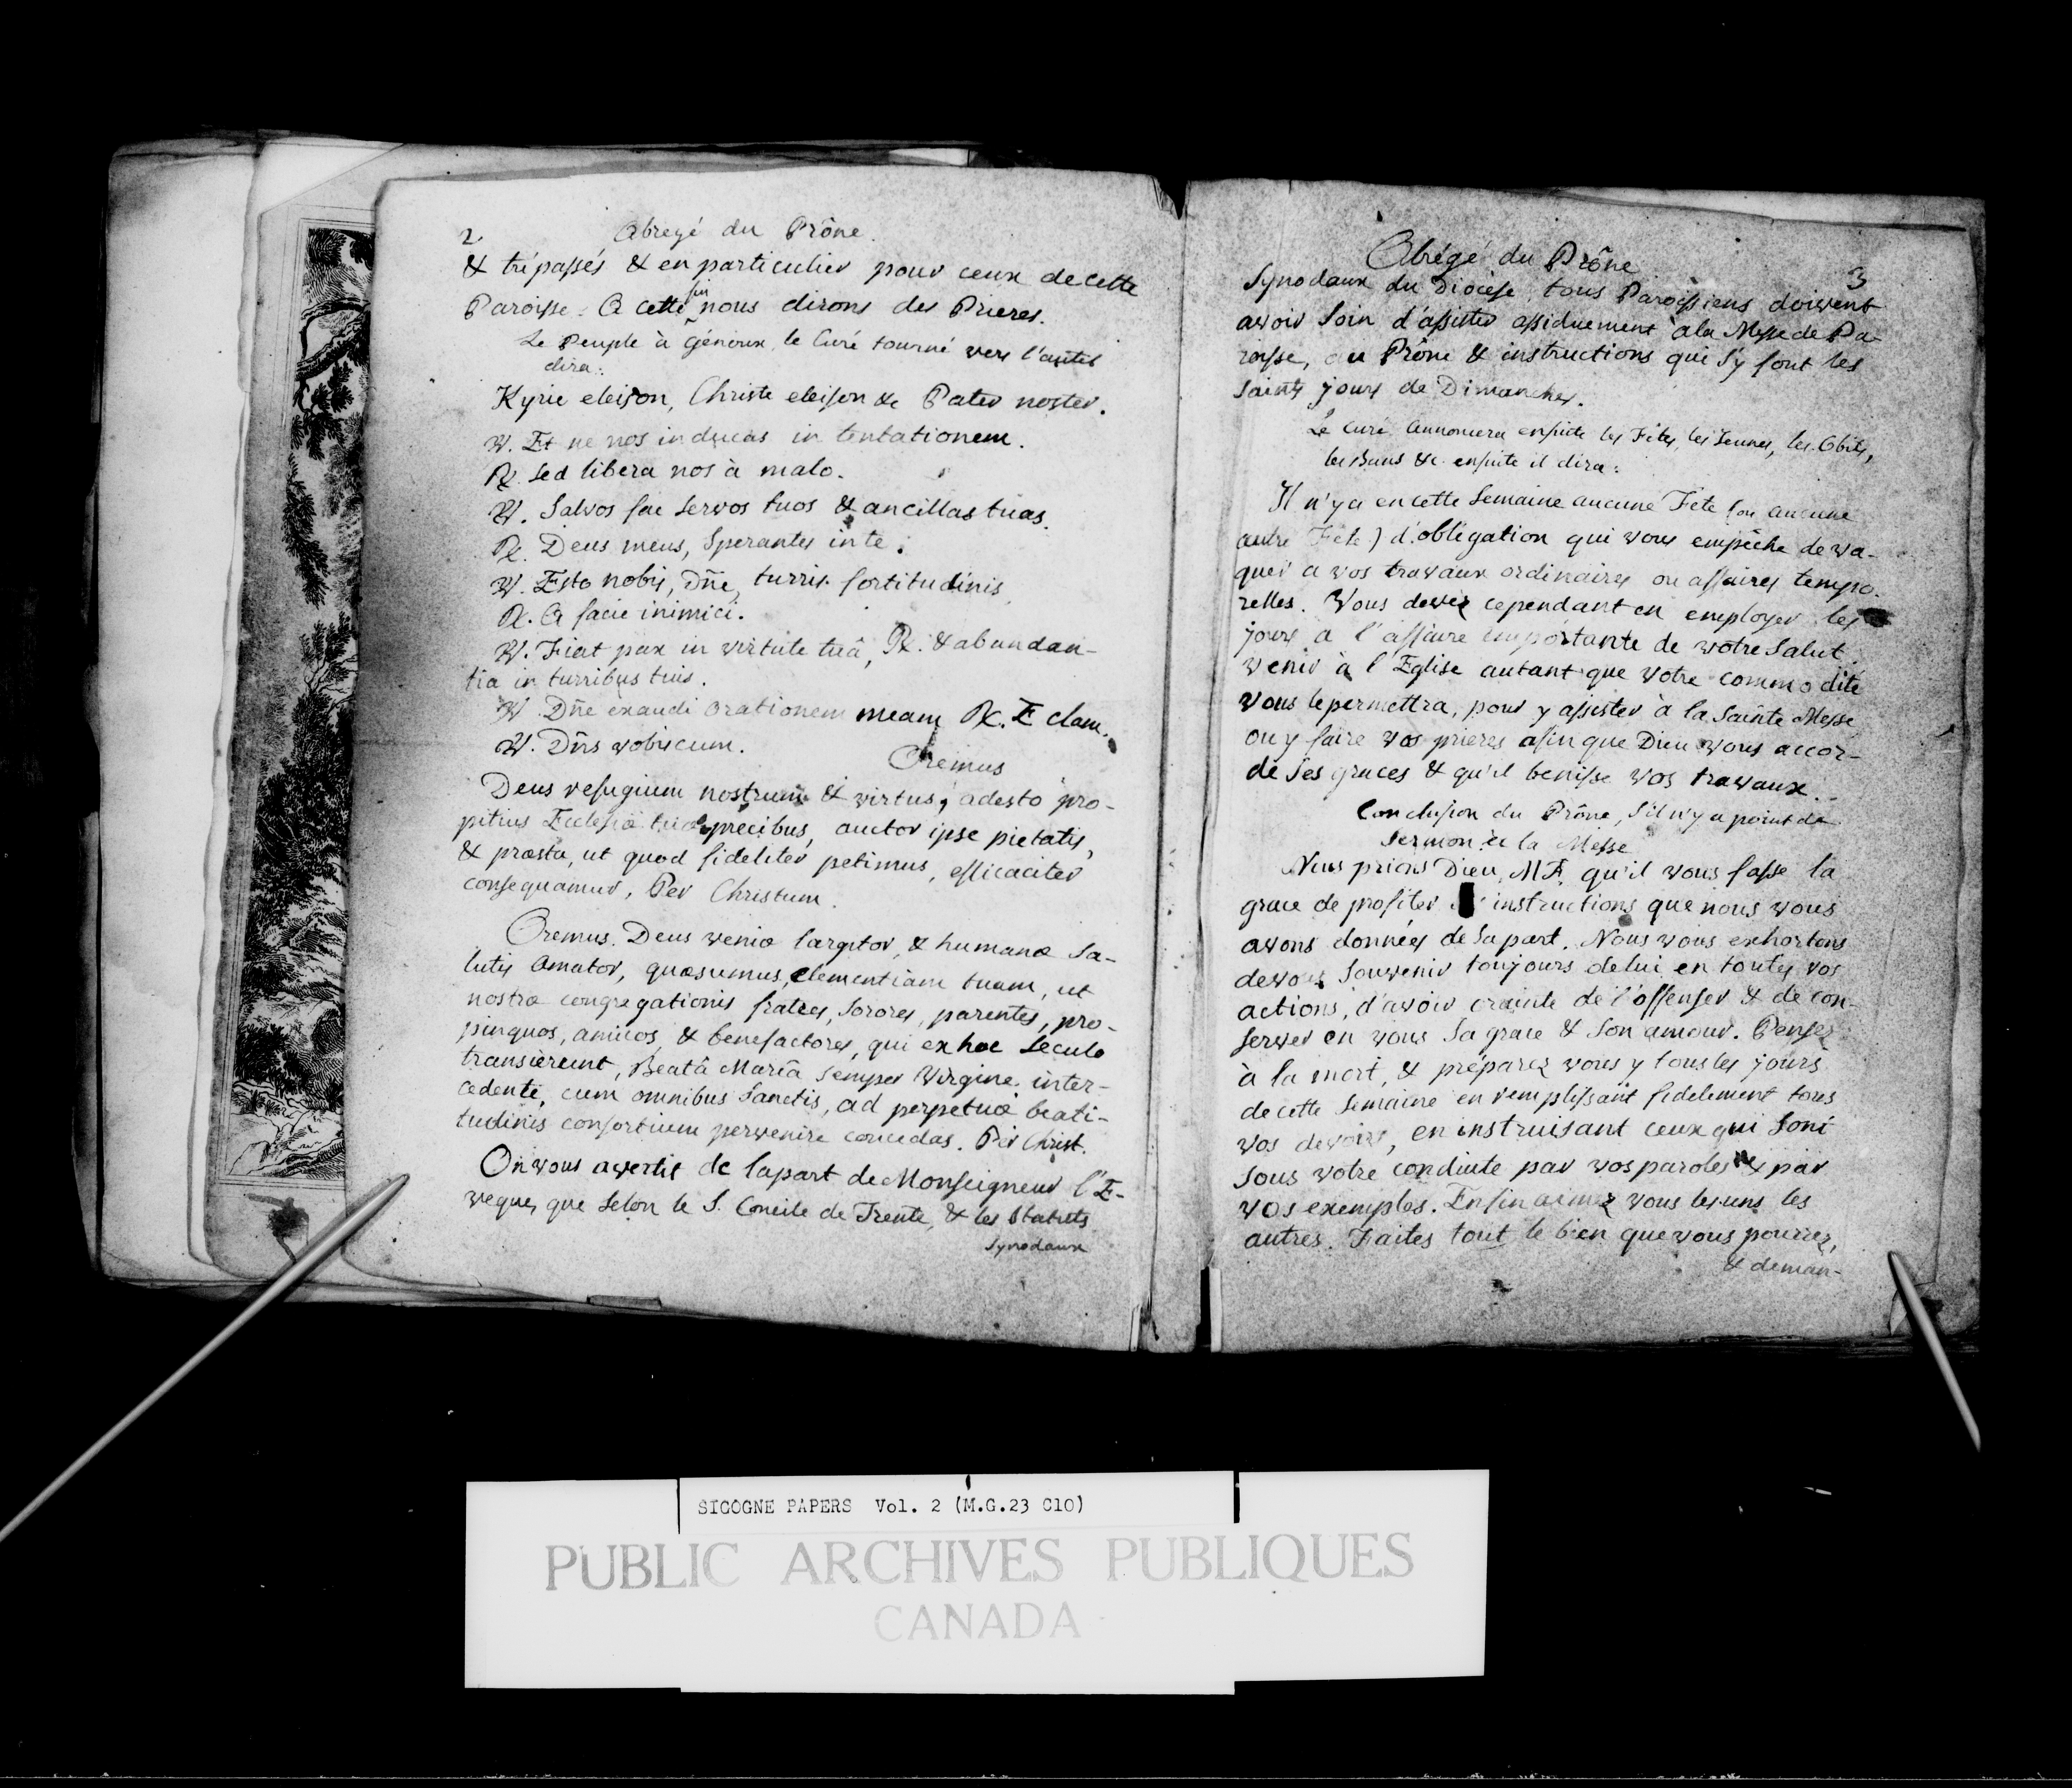 2 Abregé du Prône.
& trépassés & en particulier pour ceux de cette
Paroisse. A cette fin nous dirons des Prieres.
Le Peuple à génoux, le Curé tourné vers l'autel
dira:
Kyrie eleison, Christe eleison &c Pater noster.
℣. Et ne nos inducas in tentationem.
℟. Sed libera nos à malo.
℣. Salvos fac servos tuos & ancillas tuas.
℟. Deus meus, Sperantes in te.
℣. Esto nobis, Dñe, turris fortitudinis
℟. A facie inimici.
℣. Fiat pax in virtute tuâ, ℟. & abundan-
tia in turribus tuis.
℣. Dñe exaudi orationem meam ℟. E clam.
℣. Dñs vobiscum.
Oremus
Deus refugium nostrum & virtus, adesto pro-
pitius Ecclesiæ tuæ precibus, auctor ipse pietatis,
& præsta, ut quod fideliter petimus, efficaciter
consequamur, Per Christum.
Oremus. Deus veniæ largitor, & humanæ Sa-
lutis Amator, quæsumus, clementiam tuam, ut
nostræ congregationis fratres, Sorores, parentes, pro-
pinquos, amicos, & benefactores, qui ex hoc Seculo
transierunt, Beatâ Mariâ Semper Virgine inter-
cedente, cum omnibus Sanctis, ad perpetuæ beati-
tudinis consortium pervenire concedas. Per Christ.
On vous avertit de la part de Monseigneur l'E-
veque, que Selon le S. Concile de Trente, & les Statuts
Synodaux
Abrégé du Prône 3
Synodaux du Diocèse, tous Paroissiens doivent
avoir Soin d'assister assiduement à la Messe de Pa-
roisse, au Prône & instructions qui s'y font les
saints jours de Dimanches.
Le Curé Annoncera ensuite les Fêtes, les Jeunes, les Obits,
les Bans &c. ensuite il dira:
Il n'y a en cette Semaine aucune Fête (ou aucune
autre Fête) d'obligation qui vous empêche de va-
quer a vos travaux ordinaires ou affaires tempo-
relles. Vous devez cependant en employer les
jours a l'affaire importante de votre Salut.
venir à l'Eglise autant que votre commodité
vous le permettra, pour y assister à la Sainte Messe
ou y faire vos prieres afin que Dieu vous accor-
de Ses graces & qu'il benisse vos travaux.
Conclusion du Prône, S'il n'y a point de
Sermon à la Messe
Nous prions Dieu, M F. qu'il vous fasse la
grace de profiter instructions que nous vous
avons données de Sa part. Nous vous exhortons
de vous Souvenir toujours de lui en toutes vos
actions, d'avoir crainte de l'offenser & de con-
server en vous Sa grace & Son amour. Pensez
à la mort, & préparez vous y tous les jours
de cette Semaine en remplissant fidelement tous
vos devoirs, en instruisant ceux qui Sont
Sous votre conduite par vos paroles & par
vos exemples. Enfin aimez vous les uns les
autres. Faites tout le bien que vous pourrez,
& deman-
SIGOGNE PAPERS Vol. 2 (M.G.23 C10)
PUBLIC ARCHIVES PUBLIQUES
CANADA